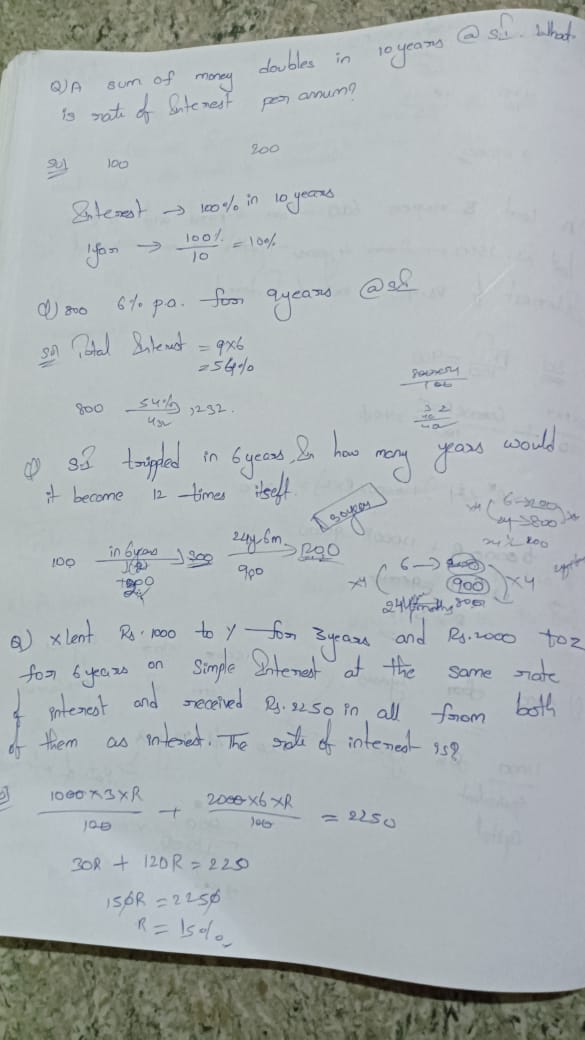 Q) A sum of money doubles in 10 years @ s.i. What
is rate of Interest per annum?
Sol 100 200
Interest → 100% in 10 years
1 year → 100%/10 = 10%
Q) 800 6% p.a. for 9 years @ si
Sol Total Interest = 9x6
= 54%
800 54%/432 1232.
Q) S.I trippled in 6 years, In how many years would
it become 12 times itself.
33 years
100 in 6 years 300 1200
900
6 →
900
x4 x4
Q) x lent Rs. 1000 to y for 3 years and Rs. 2000 to z
for 6 years on Simple Interest at the same rate
of interest and received Rs. 2250 in all from both
of them as interest. The rate of interest is?
1000 x 3 x R / 100 + 2000 x 6 x R / 100 = 2250
30R + 120R = 2250
150R = 2250
R = 15%